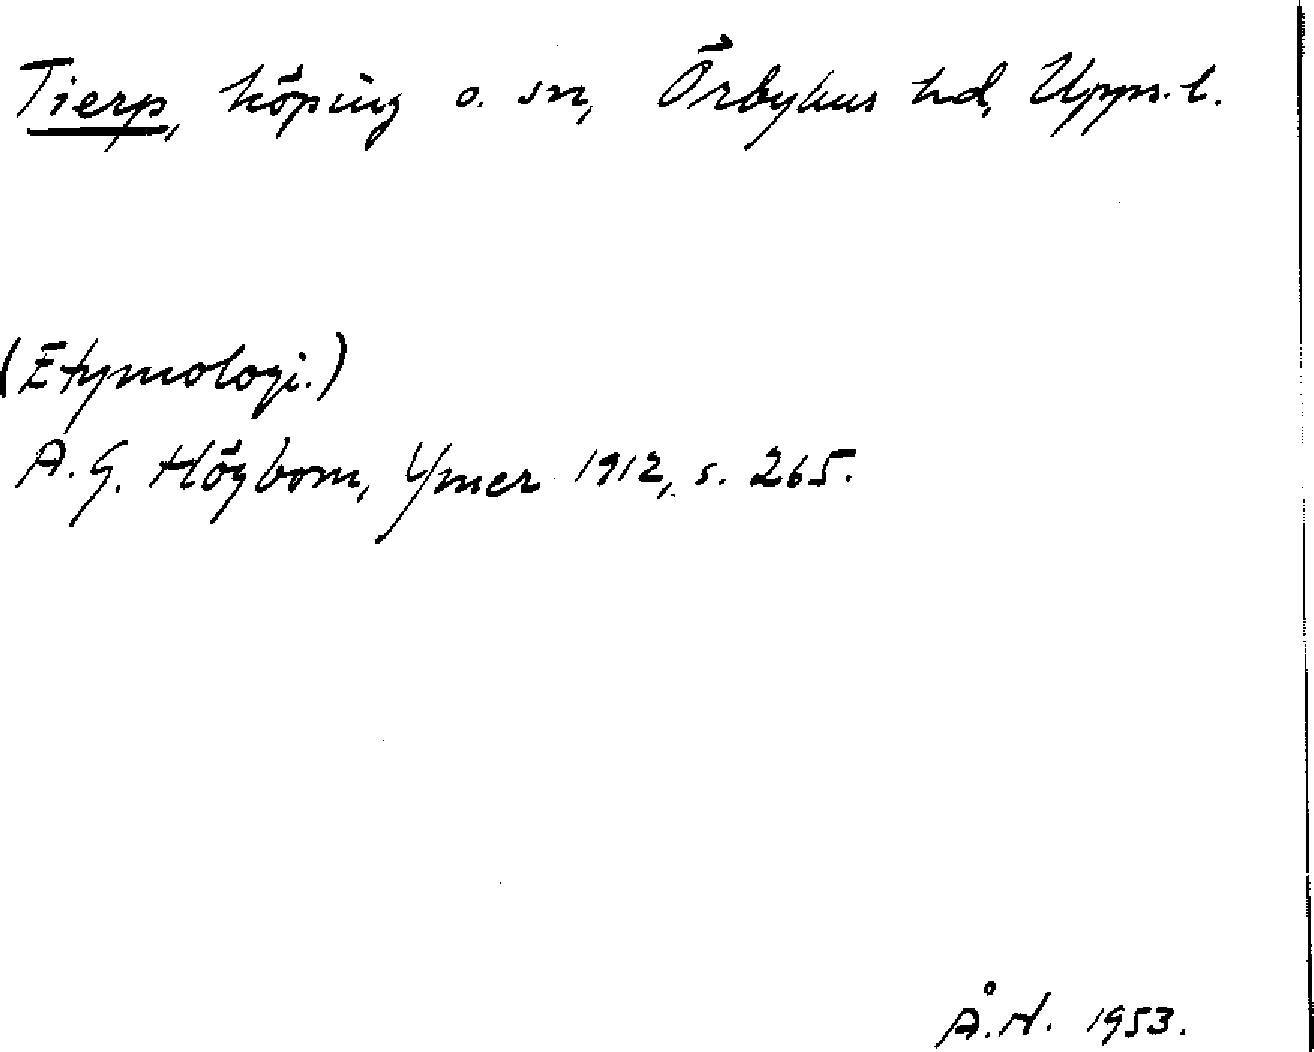 Tierp, köping o. sn, Örbyhus hd, Upps. l.
(Etymologi.)
A. G. Högbom, Ymer 1912, s. 265.
Å. N. 1953.